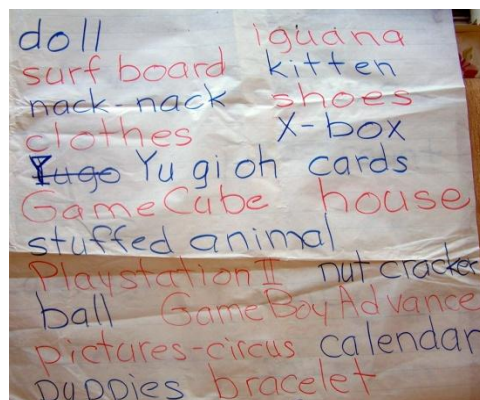 doll iguana
surf board kitten
nack-nack shoes
clothes X-box
Yugo Yu gi oh cards
GameCube house
stuffed animal
Playstation II nut cracker
ball GameBoy Advance
pictures-circus calendar
puppies bracelet